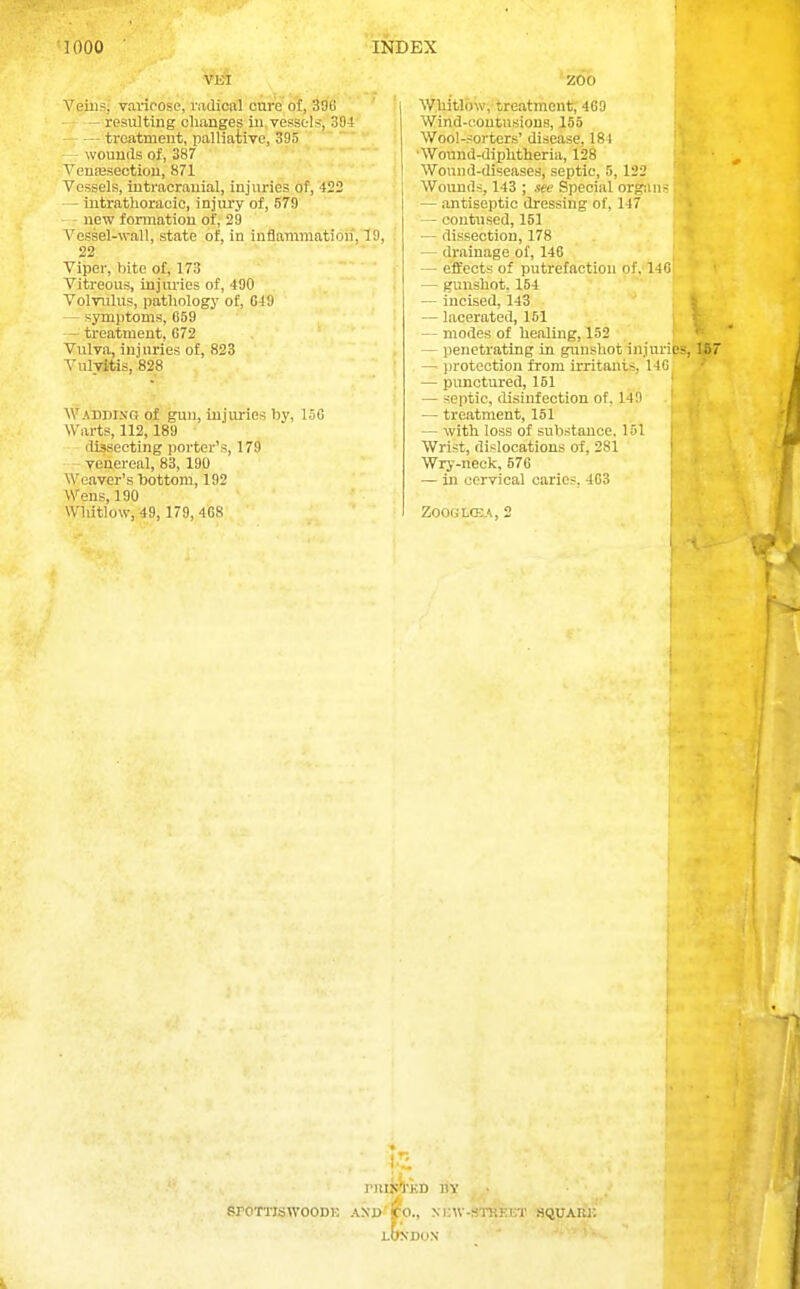 1000 INDEX
VEI
Veins, varicose, radical cure of, 396
— — resulting changes in vessels, 394
— — treatment, palliative, 395
— wounds of, 387
Venæsection, 871
Vessels, intracranial, injuries of, 422
— intrathoracic, injury of, 579
— new formation of, 29
Vessel-wall, state of, in inflammation, 19,
22
Viper, bite of, 173
Vitreous, injuries of, 490
Volvulus, pathology of, 649
— symptoms, 659
— treatment, 672
Vulva, injuries of, 823
Vulvitis, 828
WADDING of gun, injuries by, 156
Warts, 112, 189
— dissecting porter's, 179
— venereal, 83, 190
Weaver's bottom, 192
Wens, 190
Whitlow, 49, 179, 468
ZOO
Whitlow, treatment, 469
Wind-contusions, 155
Wool-sorters' disease, 184
Wound-diphtheria, 128
Wound-diseases, septic, 5, 122
Wounds, 143 ; see Special organs
— antiseptic dressing of, 147
— contused, 151
— dissection, 178
— drainage of, 146
— effects of putrefaction of, 146
— gunshot, 154
— incised, 143
— lacerated, 151
— modes of healing, 152
— penetrating in gunshot injuries, 157
— protection from irritants, 146
— punctured, 151
— septic, disinfection of, 149
— treatment, 151
— with loss of substance, 151
Wrist, dislocations of, 281
Wry-neck, 576
— in cervical caries, 463
ZOOGLŒA, 2
PRINTED BY
SPOTTISWOODE AND CO., NEW-STREET SQUARE
LONDON